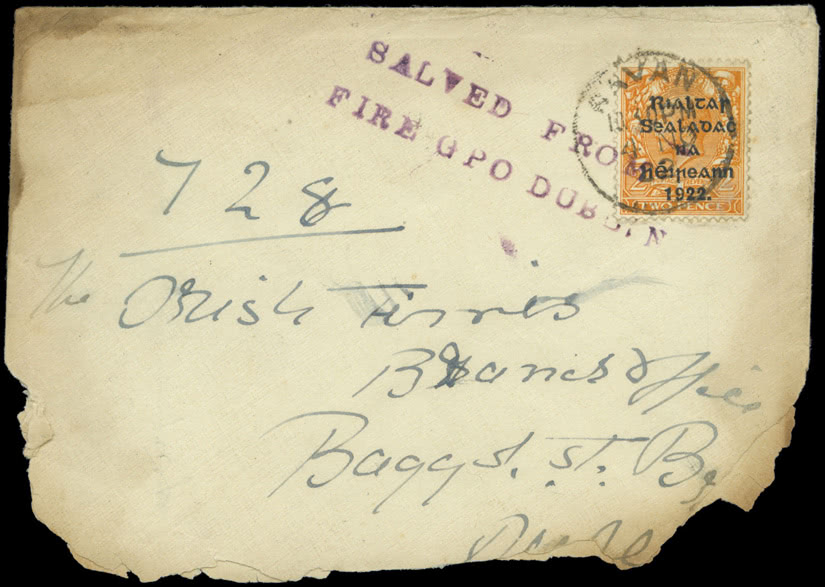 SALVED FROM
FIRE GPO DUBLIN
NAVAN
Rialtas
Sealadać
na
hÉireann
1922.
TWO PENCE
728
The Irish Times
Branch Office
Baggot. St. B